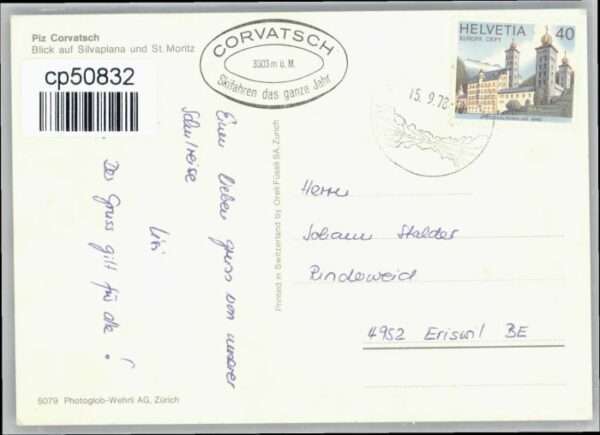 Piz Corvatsch
Blick auf Silvaplana und St. Moritz
cp50832
CORVATSCH
3303 m ü. M.
Skifahren das ganze Jahr
HELVETIA 40
EUROPA CEPT
15. 9. 78
Einen lieben gruss von unserer
Schulreise
Livi
Der Gruss gilt für alle!
Printed in Switzerland by Orell Füssli SA, Zürich
Herrn
Johann Stalder
Rindeweid
4952 Eriswil BE
5079 Photoglob-Wehrli AG, Zürich